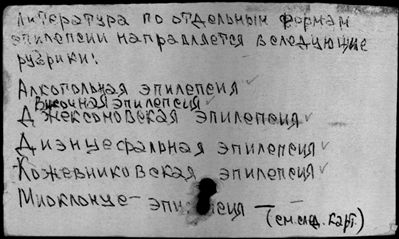 Литература по отдельным формам
эпилепсии направляется в следующие
рубрики:
Алкогольная эпилепсия ✓
Височная эпилепсия ✓
Джексоновская эпилепсия ✓
Диэнцефальная эпилепсия ✓
Кожевниковская эпилепсия ✓
Миоклонус-эпилепсия —
(см. след. карт.)